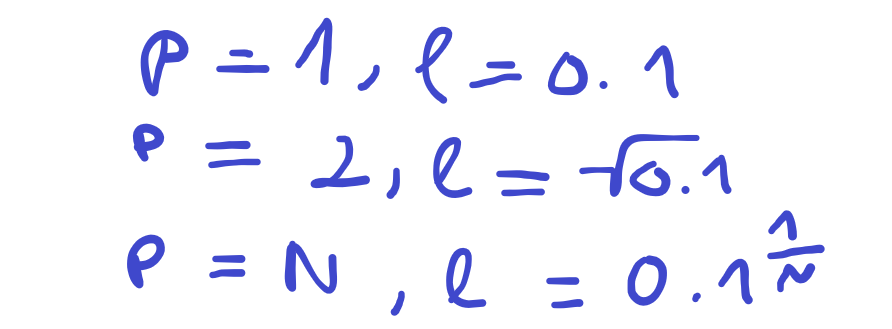 p = 1, l = 0.1
p = 2, l = √0.1
p = N, l = 0.1^(1/N)